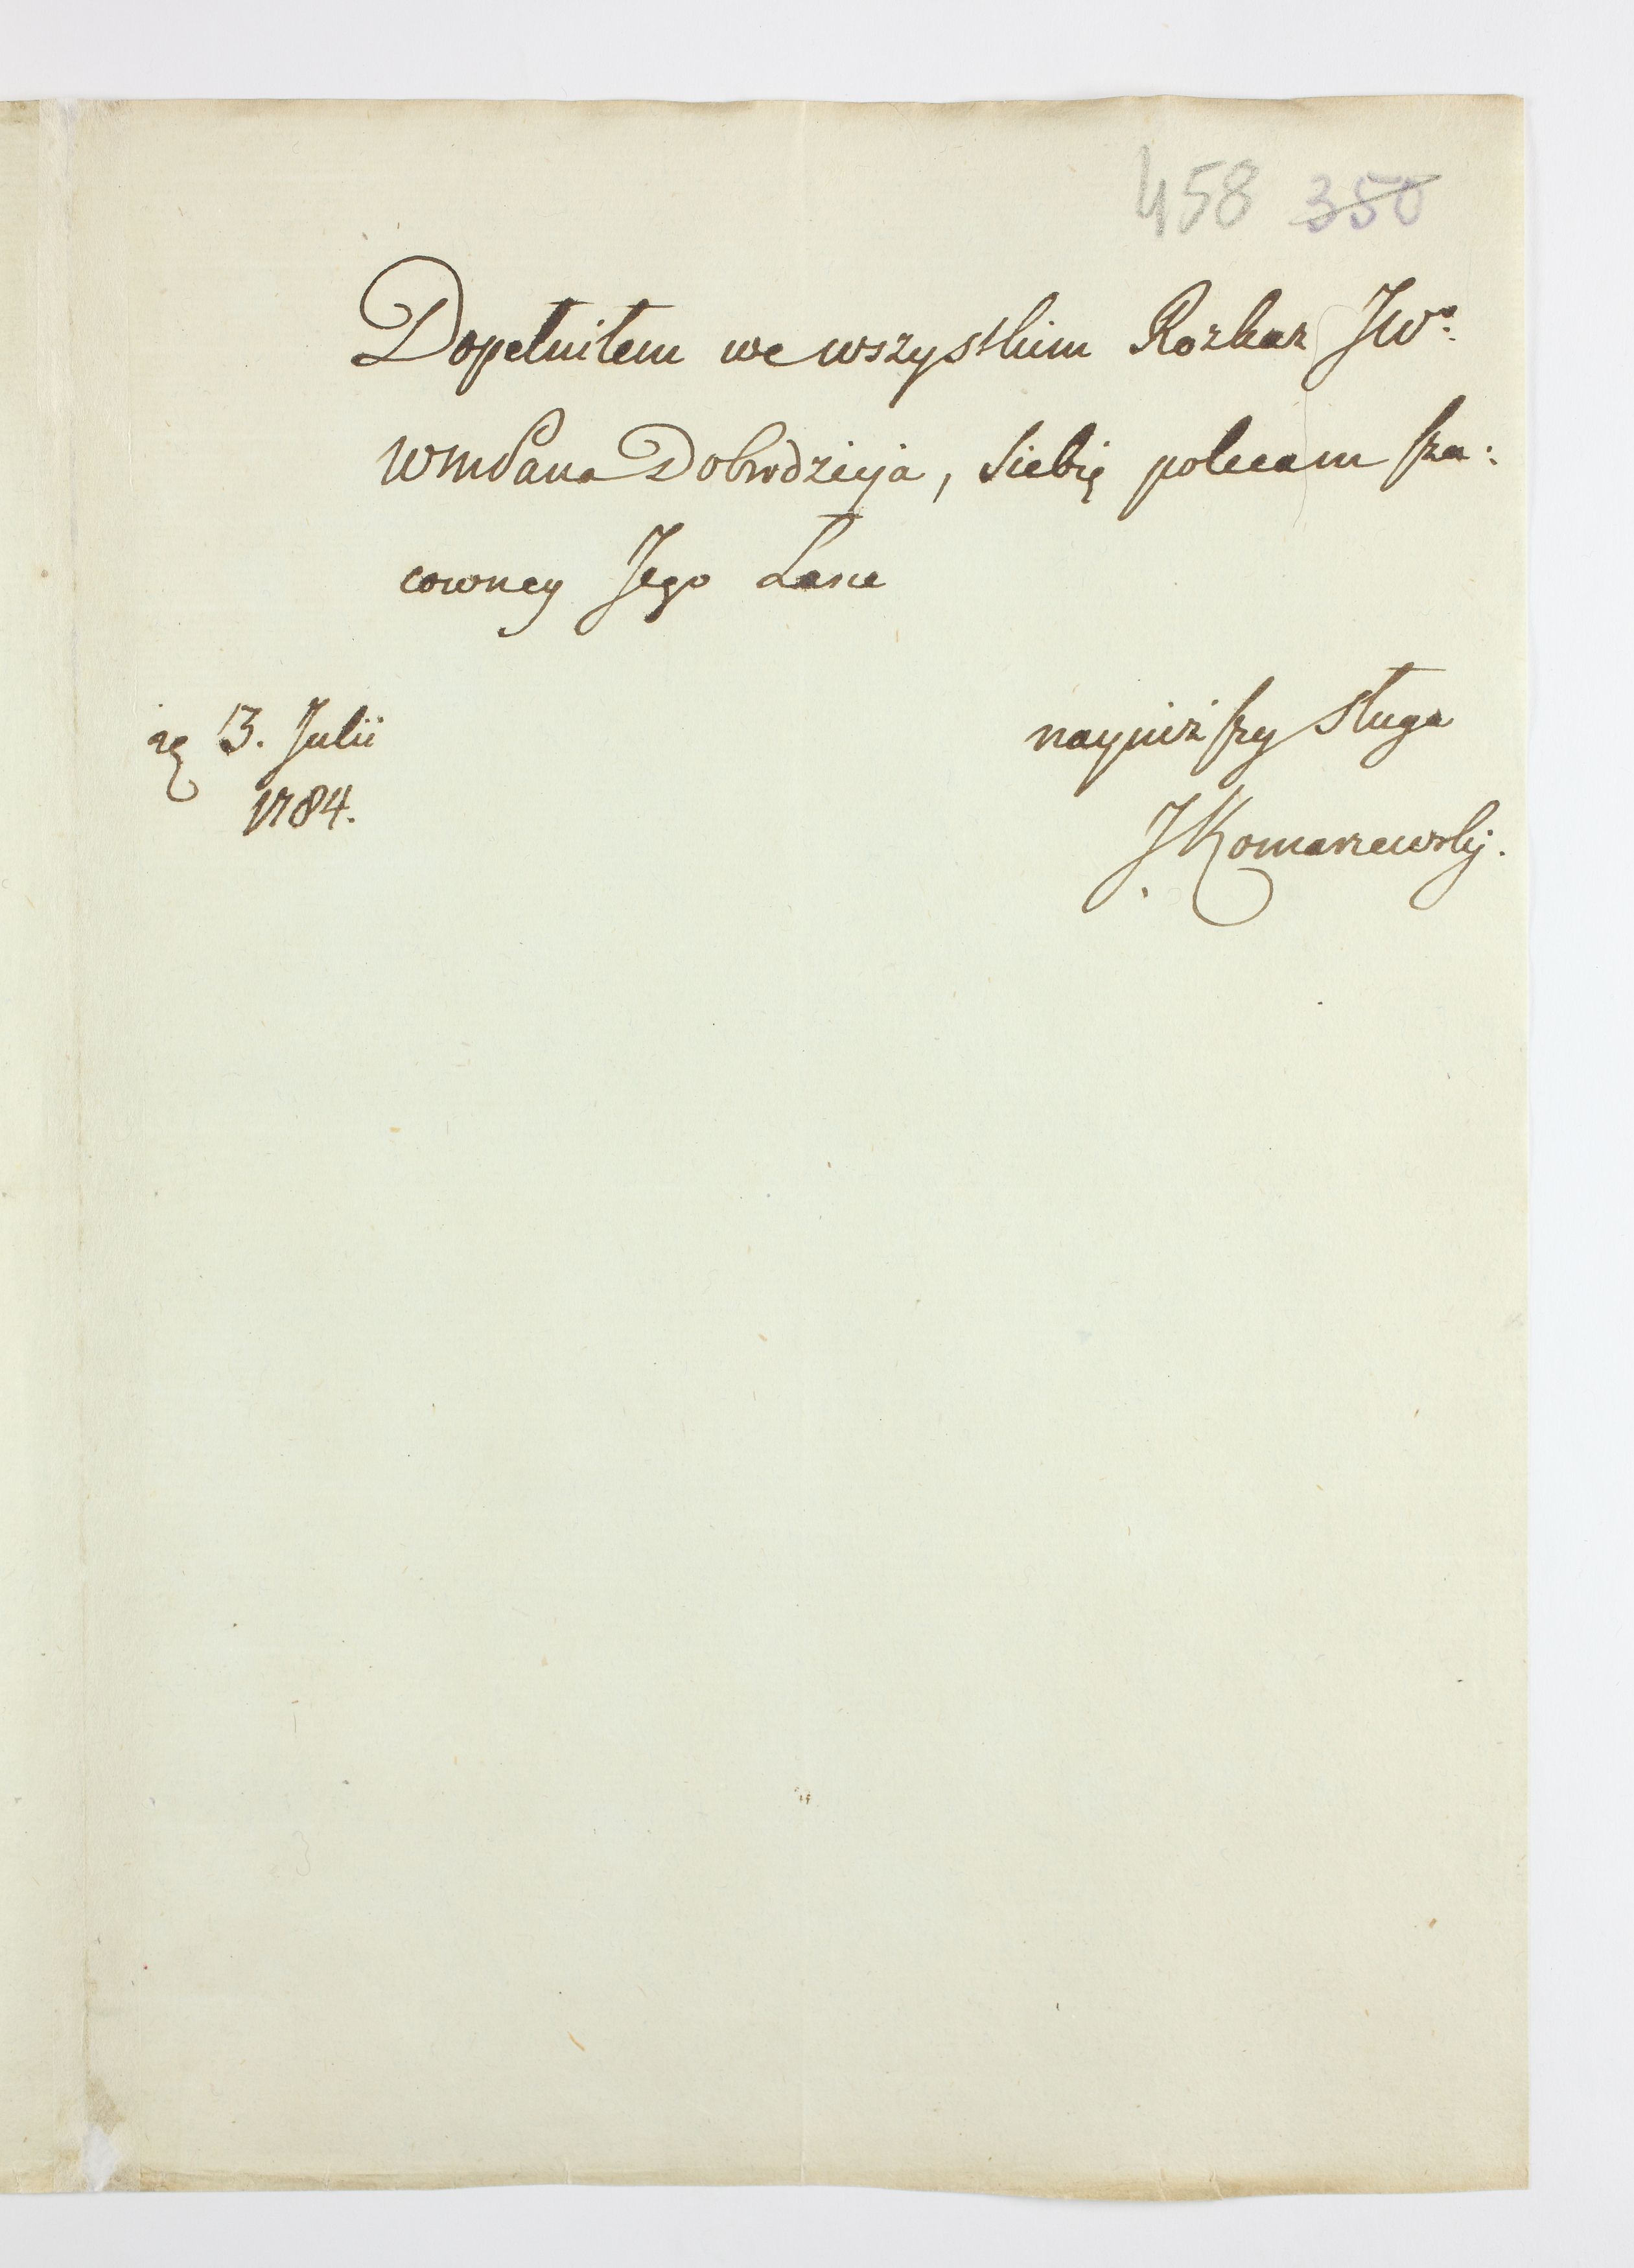 458 350
Dopełniłem we wszystkim Rozkaz JWo:
WmPana Dobrodzieja, Siebię polecam sza:
cowney Jego Łasce
13. Julii
1784.
nayniższy Sługa
J Komarzewsky.